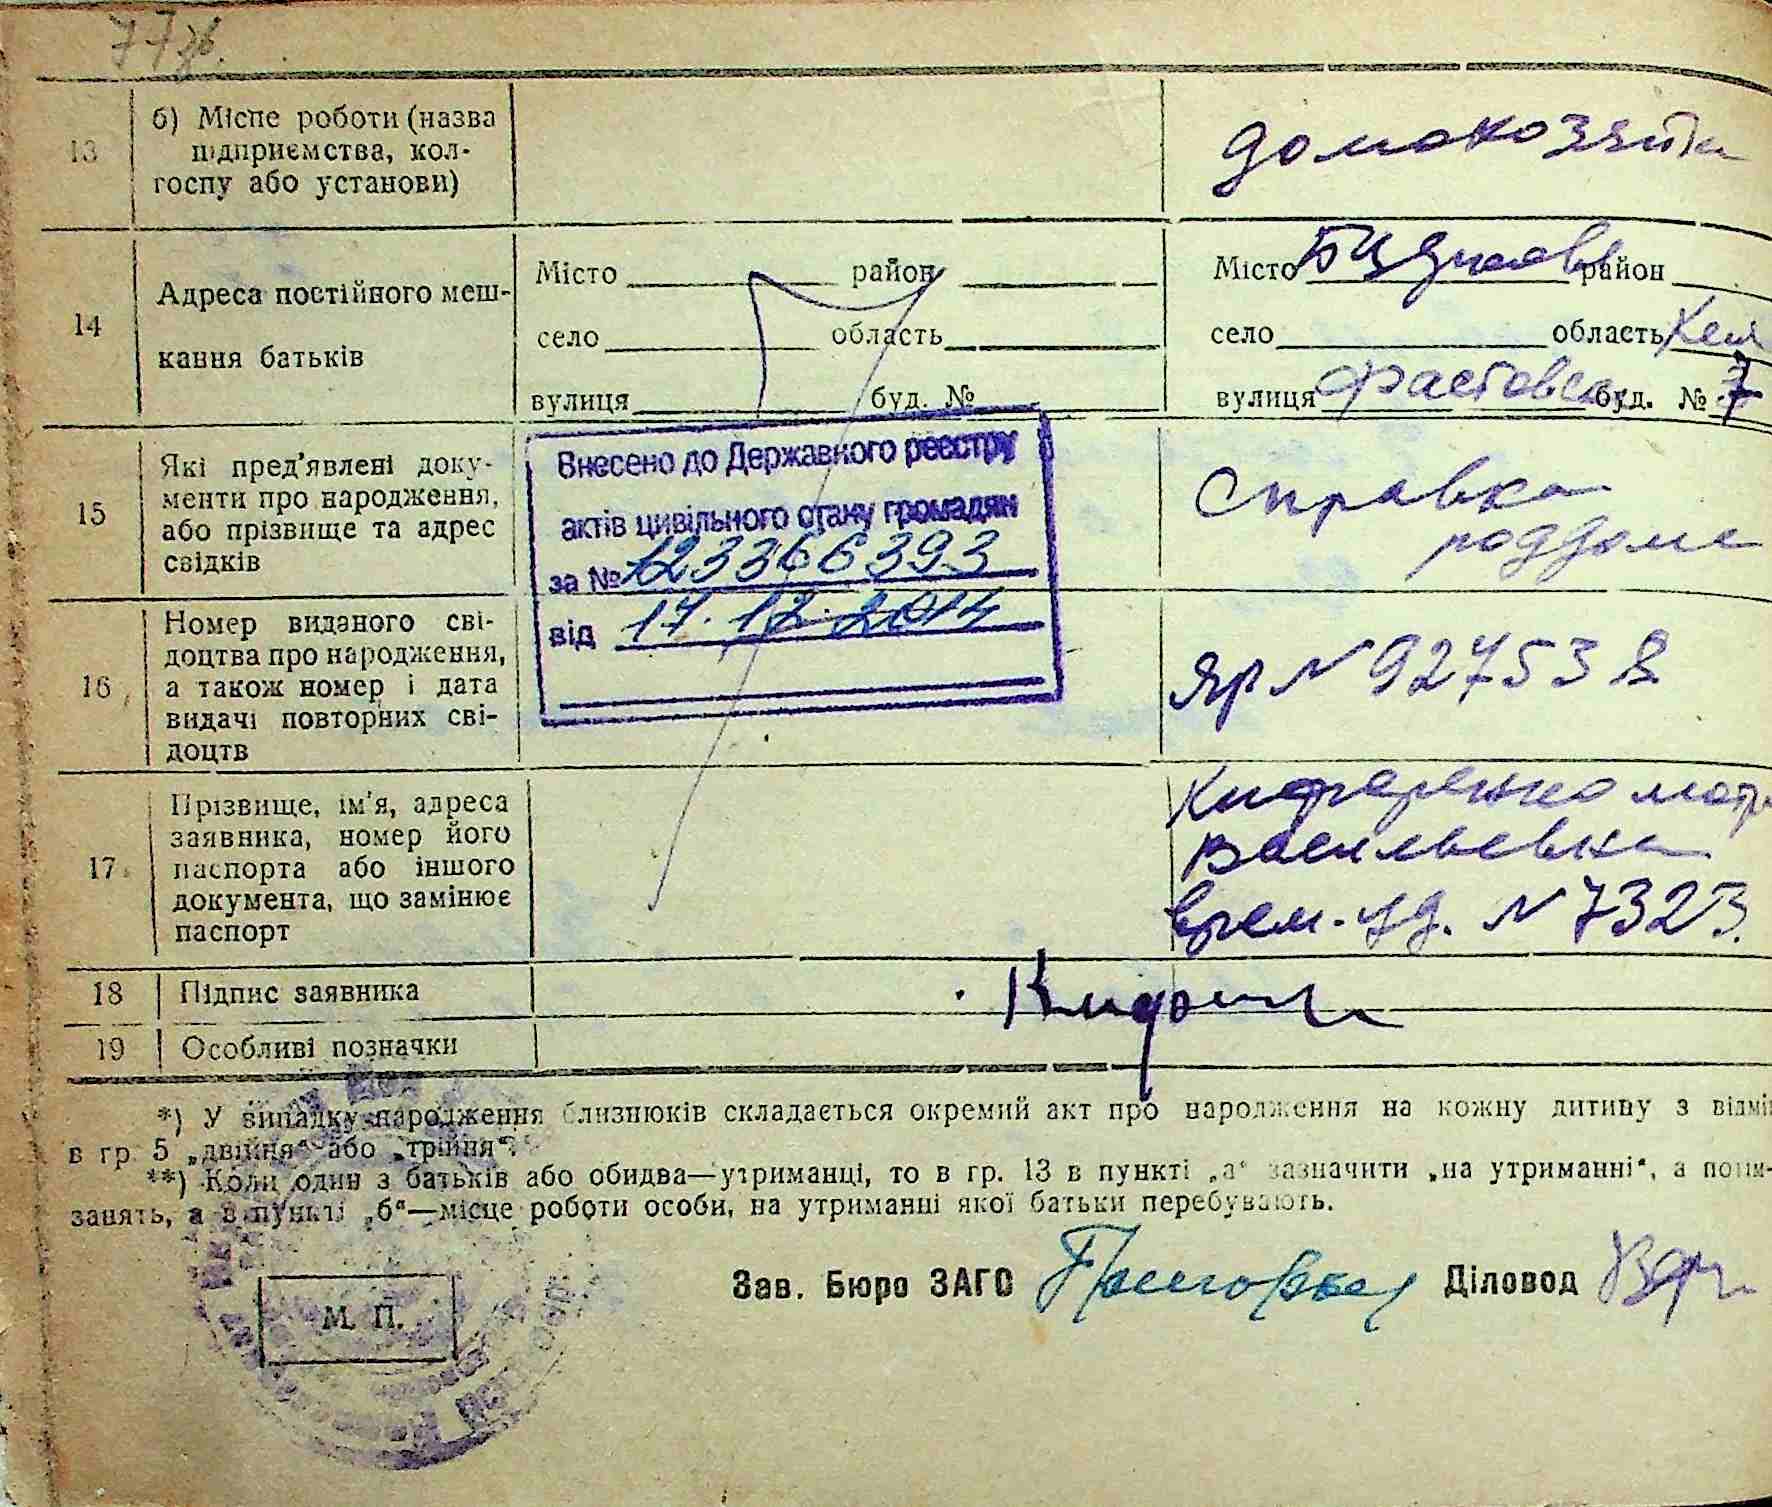 77зв.
13
б) Місце роботи (назва
підприємства, кол-
госпу або установи)
домохозяйка
14
Адреса постійного меш-
кання батьків
Місто район
село область
вулиця буд. №
Місто район
село область Кием
вулиця Фастовск буд. № 7
15
Які пред'явлені доку-
менти про народження,
або прізвище та адрес
свідків
Внесено до Державного реєстру
актів цивільного стану громадян
за № 123366393
від 17.12.2014
Справка
роддома
16
Номер виданого сві-
доцтва про народження,
а також номер і дата
видачі повторних сві-
доцтв
ЯР N 927538
17
Прізвище, ім'я, адреса
заявника, номер його
паспорта або іншого
документа, що замінює
паспорт
Васильевна
врем. уд. N 7323.
18
Підпис заявника
19
Особливі позначки
*) У випадку народження близнюків складається окремий акт про народження на кожну дитину з відмі
в гр 5 „двійня“ або „трійня“.
**) Коли один з батьків або обидва—утриманці, то в гр. 13 в пункті „а“ зазначити „на утриманні“, а
занять, а в пункті „б“—місце роботи особи, на утриманні якої батьки перебувають.
Зав. Бюро ЗАГС Діловод
М. П.